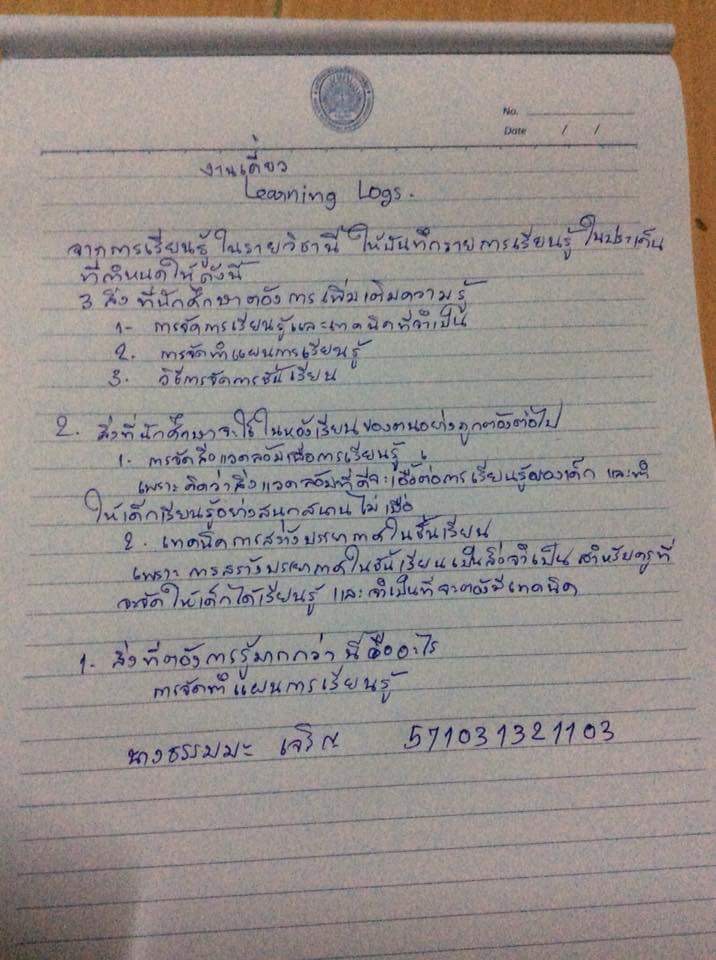 No.
Date / /
งานเดี่ยว
Learning Logs.
จากการเรียนรู้ในรายวิชานี้ ให้บันทึกรายการเรียนรู้ในประเด็น
ที่กำหนดให้ ดังนี้
3 สิ่งที่นักศึกษาต้องการเพิ่มเติมความรู้
1- การจัดการเรียนรู้และเทคนิคที่จำเป็น
2. การจัดทำแผนการเรียนรู้
3. วิธีการจัดการชั้นเรียน
2. สิ่งที่นักศึกษาจะใช้ในห้องเรียนของตนอย่างถูกต้องต่อไป
1. การจัดสิ่งแวดล้อมเพื่อการเรียนรู้
เพราะคิดว่าสิ่งแวดล้อมที่ดีจะเอื้อต่อการเรียนรู้ของเด็ก และทำ
ให้เด็กเรียนรู้อย่างสนุกสนานไม่เบื่อ
2. เทคนิคการสร้างบรรยากาศในชั้นเรียน
เพราะ การสร้างบรรยากาศในชั้นเรียนเป็นสิ่งจำเป็น สำหรับครูที่
จะจัดให้เด็กได้เรียนรู้ และจำเป็นที่จะต้องมีเทคนิค
1- สิ่งที่ต้องการรู้มากกว่านี้คืออะไร
การจัดทำแผนการเรียนรู้
นางธรรมมะ เจริญ 571031321103